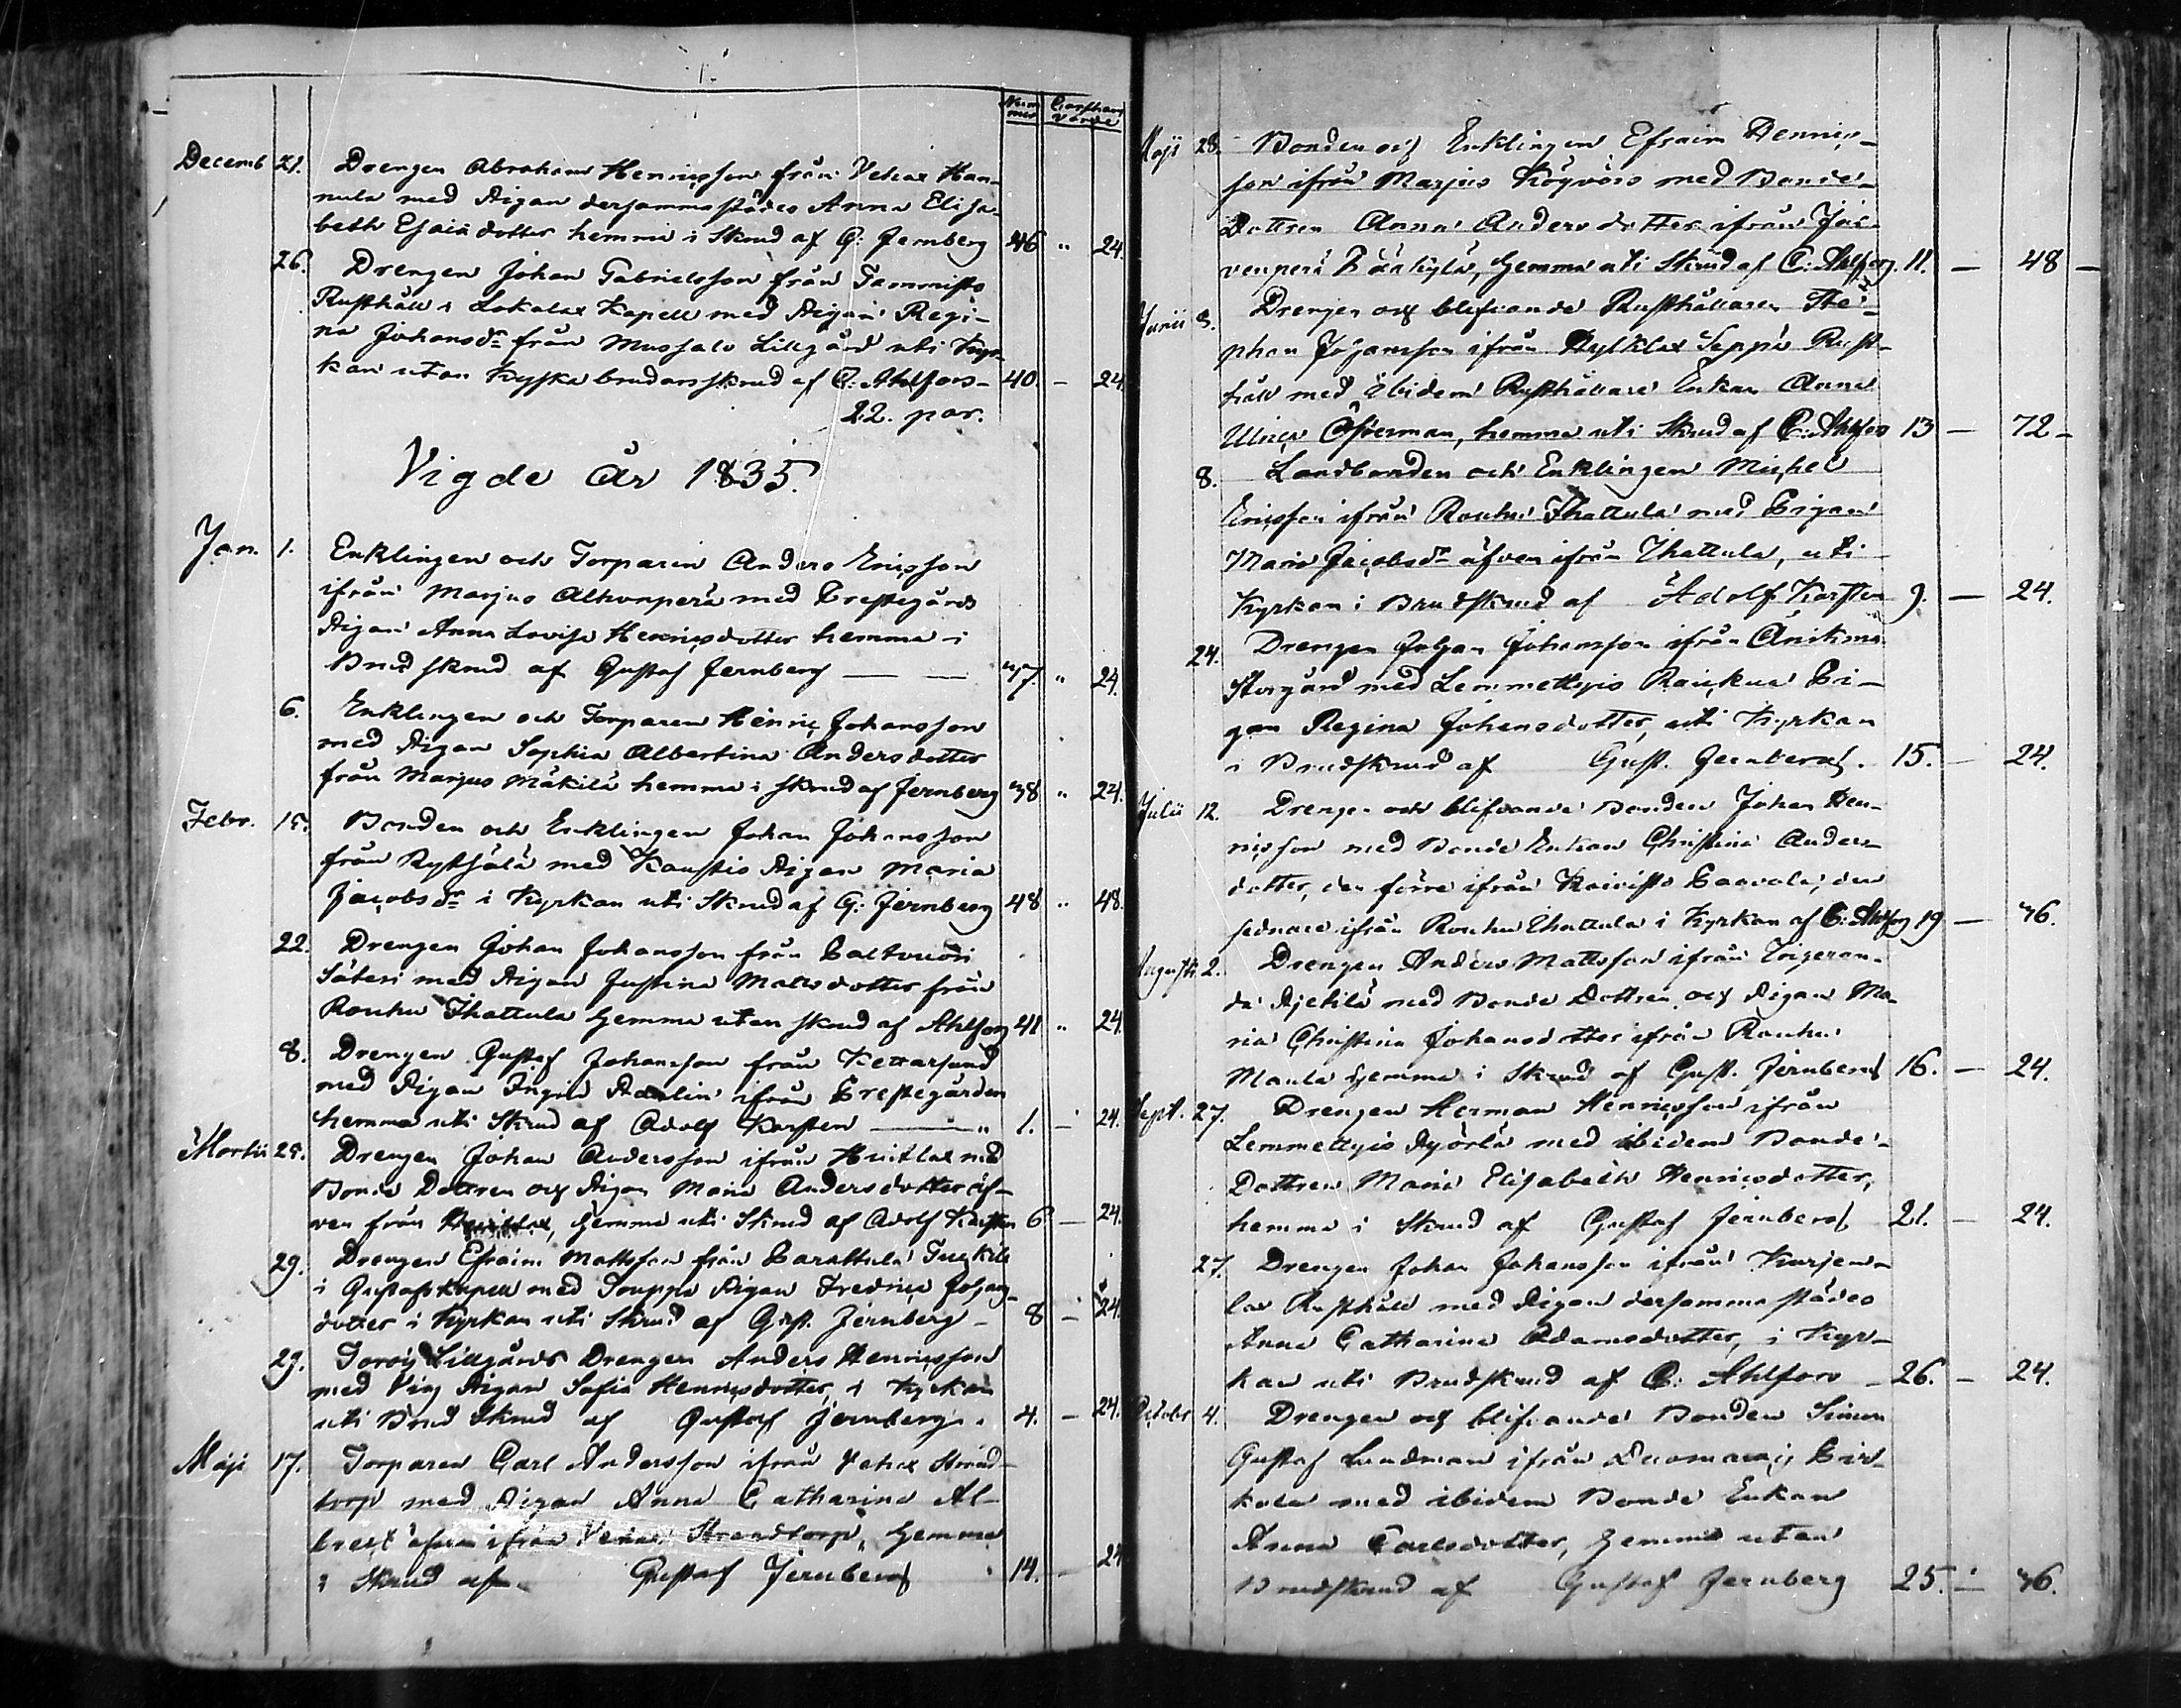 Num mer Charthav. värde
Decemb 21. Drengen Abraham Henricsson från Vehax Han-
nula med Pigan dersammastädes Anna Elisa-
beth Esaiæ dotter hemma i Skrud af G: Jernberg 46 " 24.
26. Drengen Johan Gabrielsson från Tammisto
Rusthåll i Lokalax Kapell med Pigan Regi-
na Johansdr från Mussalo Lillgård uti Kyr-
kan utan Kyska brudarsskrud af C: Ahlfors- 40. - 24.
22. par.
Vigde År 1835.
Jan. 1. Enklingen och Torparen Anders Ericsson
ifrån Marjus Alhonperä med Prestegårds
Pigan Anna Lovisa Henricsdotter hemma i
Brudskrud af Gustaf Jernberg — — 47. " 24.
6. Enklingen och Torparen Henric Johansson
med Pigan Sophia Albertina Andersdotter
från Marjus Mäkilä hemma i skrud af Jernberg 38 " 24.
Febr. 15. Bonden och Enklingen Johan Johansson
från med Kaustio Pigan Maria
Jacobsdr i Kyrkan uti Skrud af G: Jernberg 48 " 48.
22. Drengen Johan Johansson från Paltvuori
Säteri med Pigan Justina Mattsdotter från
Rouhu Thattula hemma utan skrud af Ahlfors 41 " 24.
8. Drengen Gustaf Johansson från Kettarsund
med Pigan Ingrid ifrån Prestegården
hemma uti Skrud af Adolf Karsten — " 1. - 24.
Martii 25. Drengen Johan Andersson ifrån med
Bonde Dottren och Pigan Maria Andersdotter äf-
ven från , hemma uti Skrud af Adolf Karsten 6 - 24.
29. Drengen Efraim Mattsson från Parattula
i Gustafs kapell med Pigan Fredrica Johans-
dotter i Kyrkan uti Skrud af Gust. Jernberg - 8 - 24.
29. Lillgårds Drengen Anders Henricsson
med Pigan Sofia Henricsdotter, i Kyrkan
uti Brud Skrud af Gustaf Jernberg. 4. - 24.
Maji 17. Torparen Carl Andersson ifrån Vehax Strand-
torp med Pigan Anna Catharina Al-
brect äfven ifrån Vehax Strandtorp, hemma
i Skrud af Gustaf Jernberg 14. - 24
Maji 28. Bonden och Enklingen Efraim Henrics-
son ifrån Marjus med Bonde
Dottren Anna Andersdotter ifrån Jär-
venperä , hemma uti Skrud af C: Ahlfors. 11. - 48 -
Junii 8. Drengen och blifvande Rusthållaren Ste-
phan Johansson ifrån Seppä Rust-
håll med ibidem Rusthållare Enkan Anna
Ulrica Österman, hemma uti Skrud af C: Ahlfors 13 - 72 -
8. Landbonden och Enklingen Michel
Ericsson ifrån Rouhu Thattula med Pigan
Maria Jacobsdr äfven ifrån Thattula, uti
Kyrkan i Brudskrud af Adolf Karsten 9. - 24.
24. Drengen Johan Johansson ifrån
Storgård med Lemmettyis Pi-
gan Regina Johansdotter, uti Kyrkan
i Brudskrud af Gust. Jernberg. 15. - 24.
Julii 12. Drengen och blifvande Bonden Johan Hen-
ricsson med Bonde Enkan Christina Anders-
dotter, den förre ifrån Koivisto Paavola, den
sednare ifrån Rouhu Thattula i Kyrkan af C: Ahlfors 19 - 36.
Augusti 2. Drengen Anders Mattsson ifrån
med Bonde Dottren och Pigan Ma-
ria Christina Johansdotter ifrån Rouhu
Maula hemma i Skrud af Gust. Jernberg 16. - 24.
Sept. 27. Drengen Herman Henricsson ifrån
Lemmettyis med ibidem Bonde
Dottren Maria Elisabeth Henricsdotter,
hemma i Skrud af Gustaf Jernberg 21. - 24.
27. Drengen Johan Johansson ifrån Kurjen-
Rusthåll med Pigan dersammastädes
Anna Catharina Adamsdotter, i Kyr-
kan uti Brudskrud af C: Ahlfors - 26. - 24.
October 4. Drengen och blifvande Bonden Simon
Gustaf Lundman ifrån Pir-
kola med ibidem Bonde Enkan
Anna Carlsdotter, hemma utan
Brudskrud af Gustaf Jernberg 25. - 36.